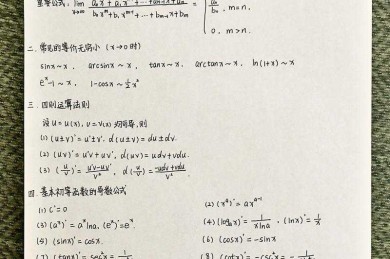 重要公式: lim x→∞ a₀xⁿ+a₁xⁿ⁻¹+···+aₙ₋₁x+aₙ / b₀xᵐ+b₁xᵐ⁻¹+···+bₘ₋₁x+bₘ = { a₀/b₀, m=n,
0, m>n.
二. 常见的等价无穷小 (x→0时)
sinx~x, arcsinx~x, tanx~x, arctanx~x, ln(1+x)~x
eˣ-1~x, 1-cosx~½x²
三. 四则运算法则
设u=u(x), v=v(x)均可导, 则
(1) (u±v)'=u'±v'. d(u±v)=du±dv.
(2) (uv)'=u'v+uv', d(uv)=udv+vdu.
(3) (u/v)'=u'v-uv'/v², d(u/v)=-udv+vdu/v²
四. 基本初等函数的导数公式
(1) c'=0 (2) (xᵃ)'=axᵃ⁻¹
(3) (aˣ)'=aˣlna, (eˣ)'=eˣ (4) (logₐx)'=1/xlna, (lnx)'=1/x
(5) (sinx)'=cosx. (6) (cosx)'=-sinx
(7) (tanx)'=sec²x= (8) (cotx)'=-csc²x=-